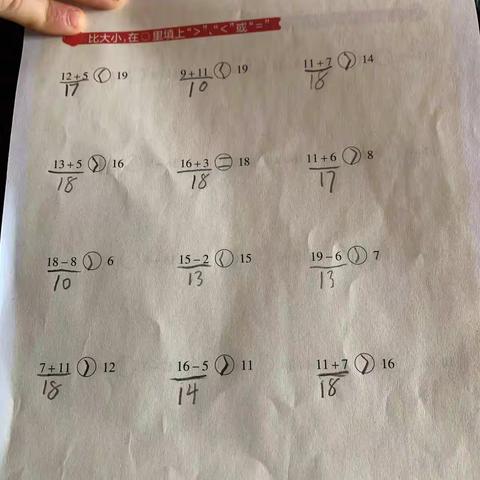 比大小,在○里填上“>”、“<”或“=”
12+5 < 19 9+11 < 19 11+7 > 14
17 10 18
13+5 > 16 16+3 = 18 11+6 > 8
18 18 17
18-8 > 6 15-2 < 15 19-6 > 7
10 13 13
7+11 > 12 16-5 > 11 11+7 > 16
18 14 18